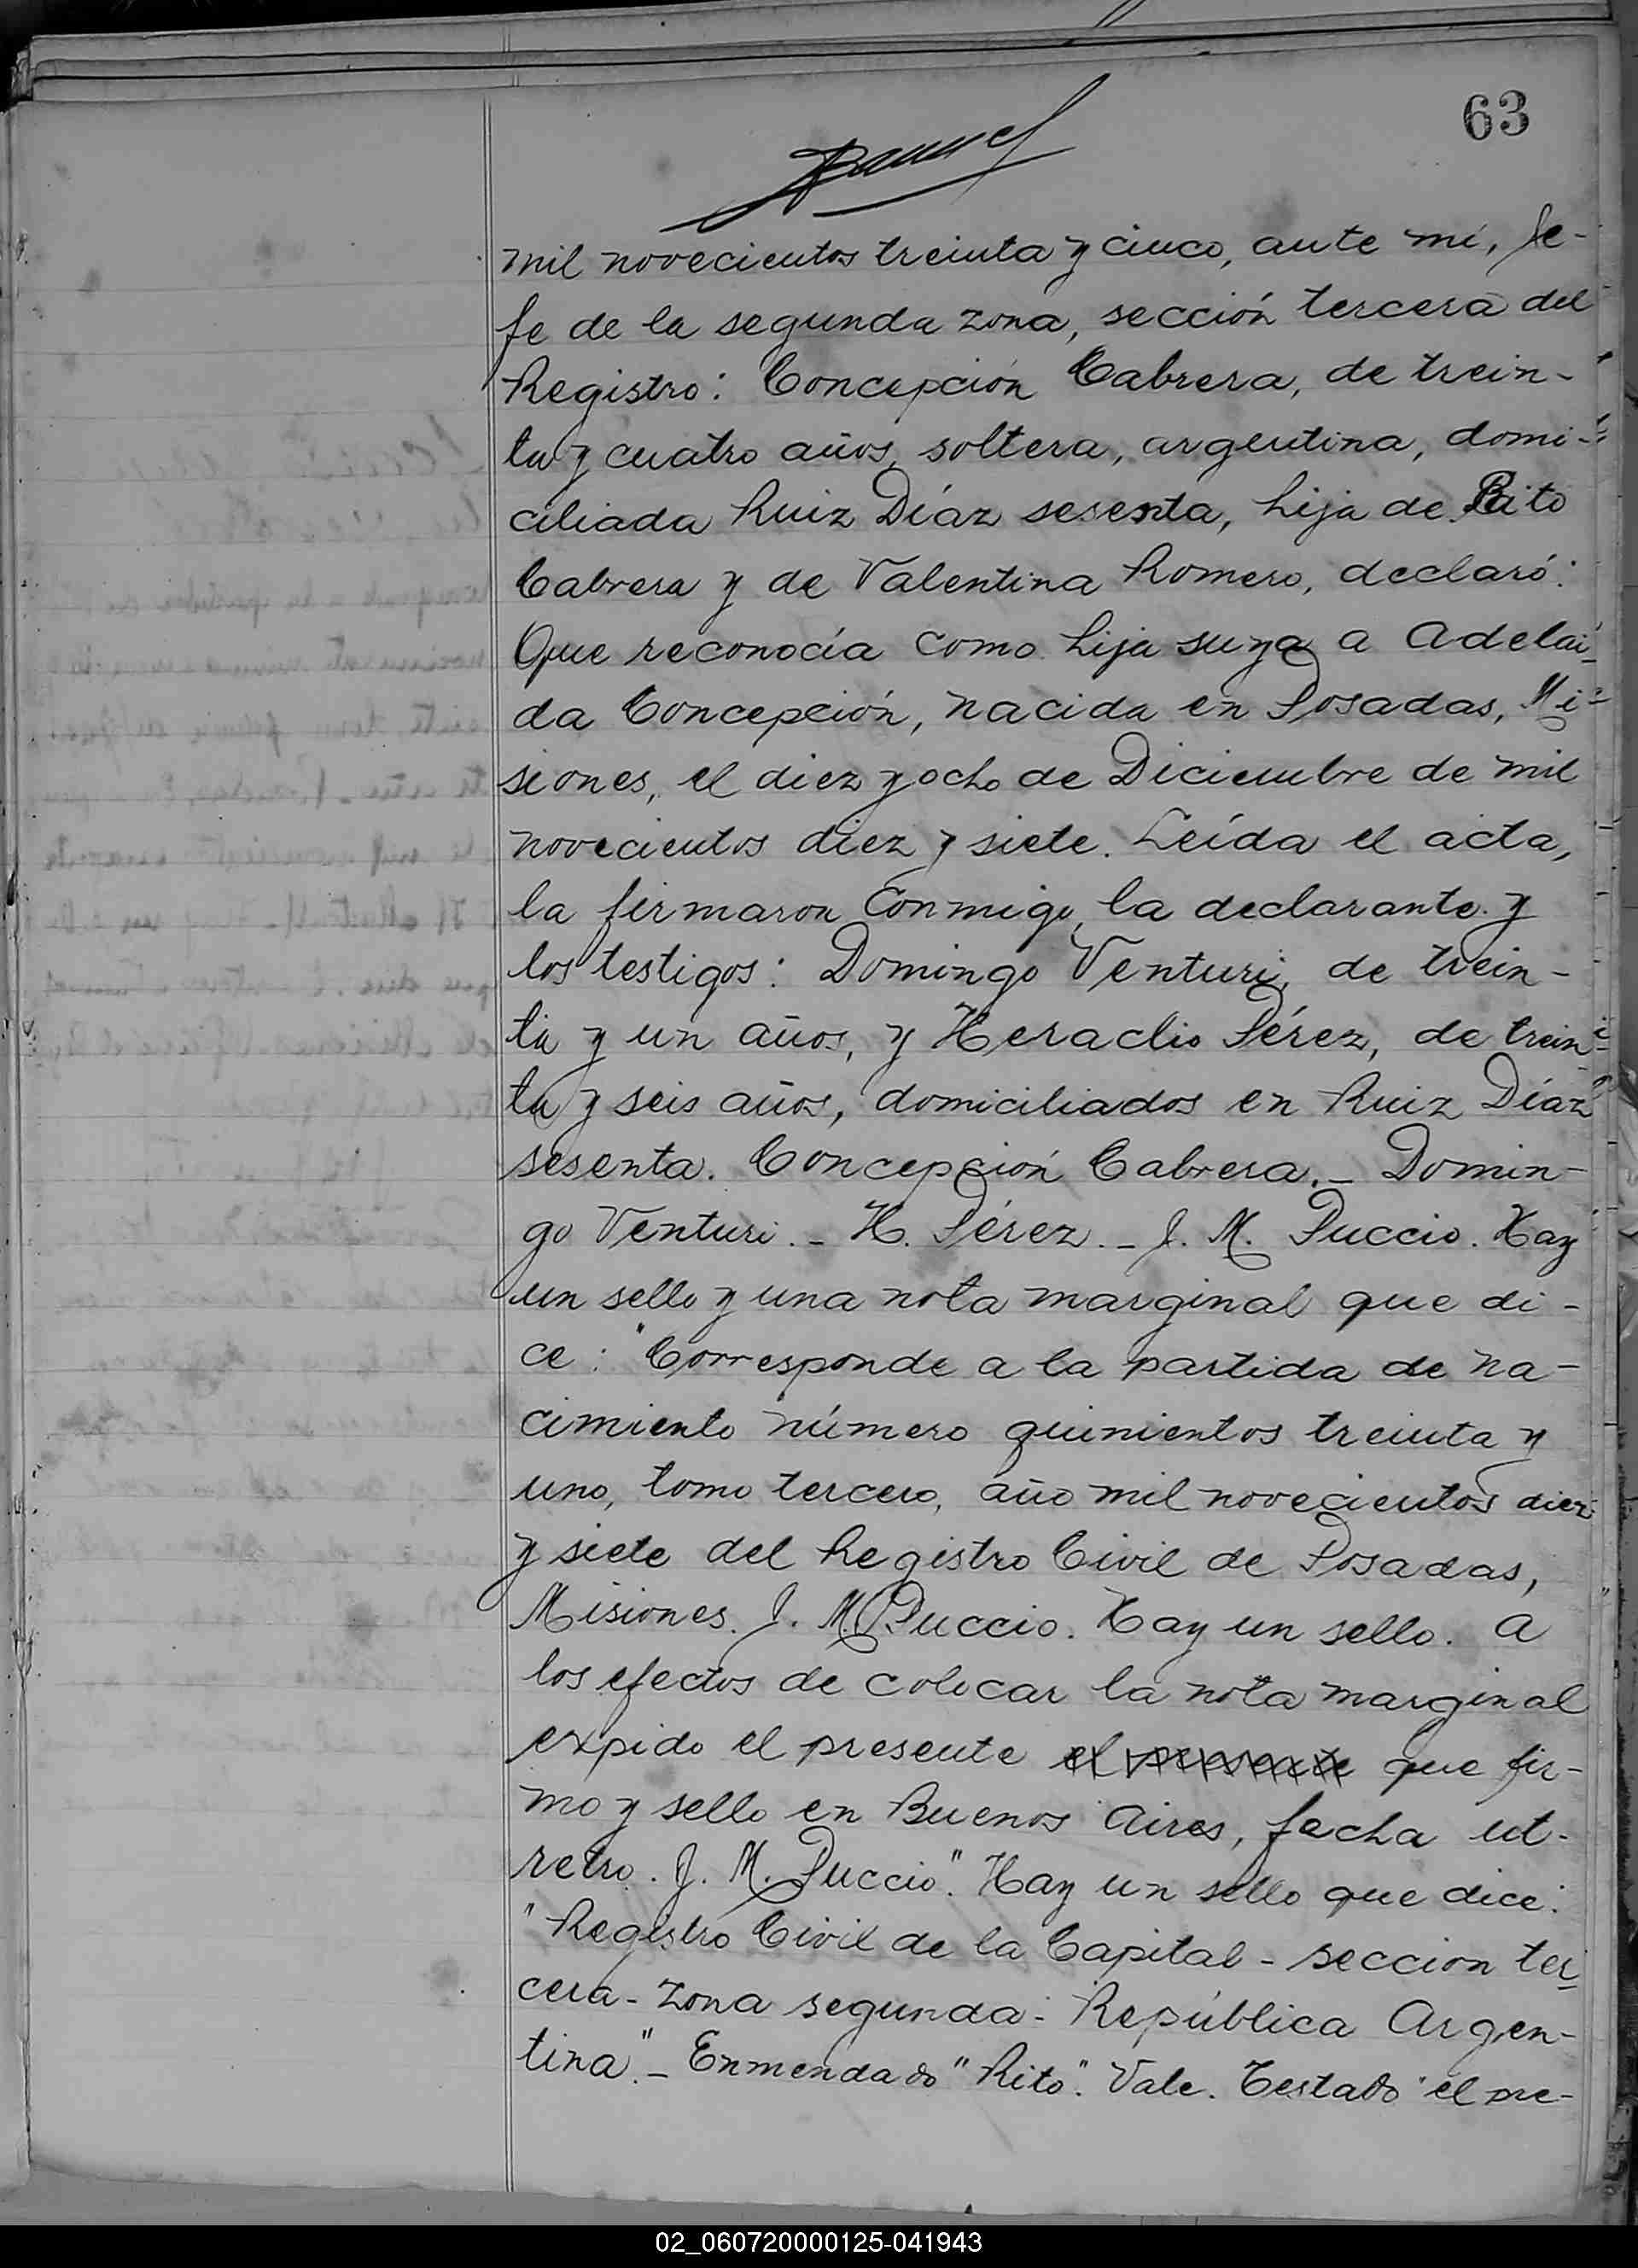 63
mil novecientos treinta y cinco, ante mi, Je-
fe de la segunda zona, sección tercera del
Registro: Concepción Cabrera, de trein-
ta y cuatro años, soltera, argentina, domi-
ciliada Ruiz Díaz sesenta, hija de Rito
Cabrera y de Valentina Romero, declaró:
Que reconocía como hija suya a Adelai-
da Concepción, nacida en Posadas, Mi-
siones, el diez y ocho de Diciembre de mil
novecientos diez y siete. Leída el acta,
la firmaron conmigo, la declarante y
los testigos: Domingo Venturi, de trein-
ta y un años, y Heraclio Pérez, de trein-
ta y seis años, domiciliados en Ruiz Díaz
sesenta. Concepción Cabrera. - Domin-
go Venturi. - H. Pérez. - J. M. Puccio. Hay
un sello y una nota marginal que di-
ce: "Corresponde a la partida de na-
cimiento número quinientos treinta y
uno, tomo tercero, año mil novecientos diez
y siete del Registro Civil de Posadas,
Misiones. J. M. Puccio. Hay un sello. A
los efectos de colocar la nota marginal
expido el presente el presente que fir-
mo y sello en Buenos Aires, fecha ut-
retro. J. M. Puccio". Hay un sello que dice:
"Registro Civil de la Capital - seccion ter-
cera - Zona segunda - República Argen-
tina". - Enmendado "Rito". Vale. Testado "el pre-
02_060720000125-041943